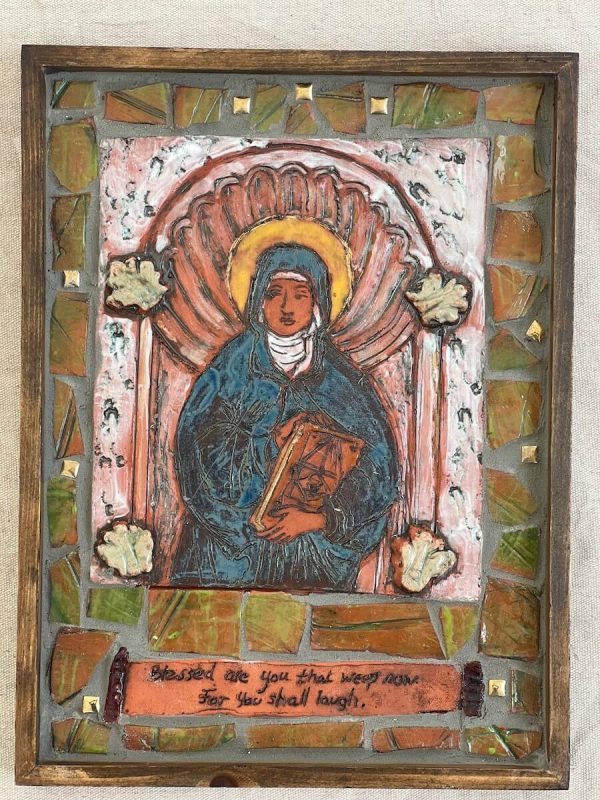 Blessed are you that weep now.
For you shall laugh.